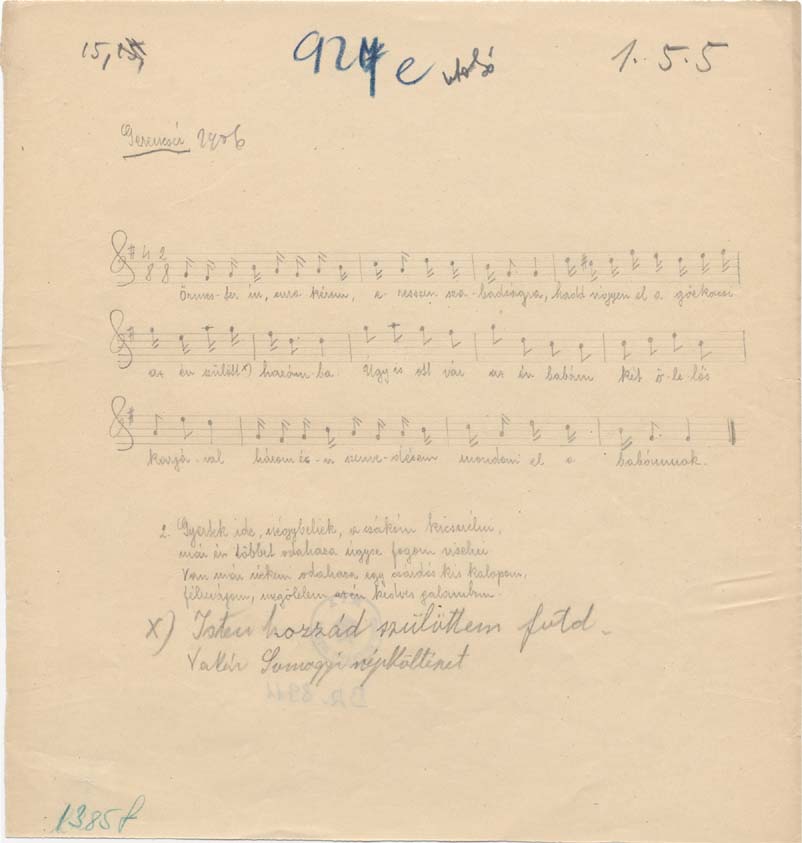 15, 15,
924 e utolsó
1. 5. 5
Gerencsér 1906
4 2
8 8
Őrmes-ter úr, arra kérem, e-resszen sza-badságra, hadd vigyen el a gőzkocsi
az én szülött x) hazám-ba Úgy is ott vár az én babám két ö-le-lős
karjá-val három év-i szenve-désem mondani el a babámnak.
2. Gyertek ide, négybeliek, a csákóm kicserélni,
már én többet odahaza úgyse fogom viselni
Van már nékem odahaza egy csárdás kis kalapom,
félrevágom, megölelem azén kedves galambom.
x) Isten hozzád szülöttem föld.
Vikár Somogyi népköltészet
BR.
1385f